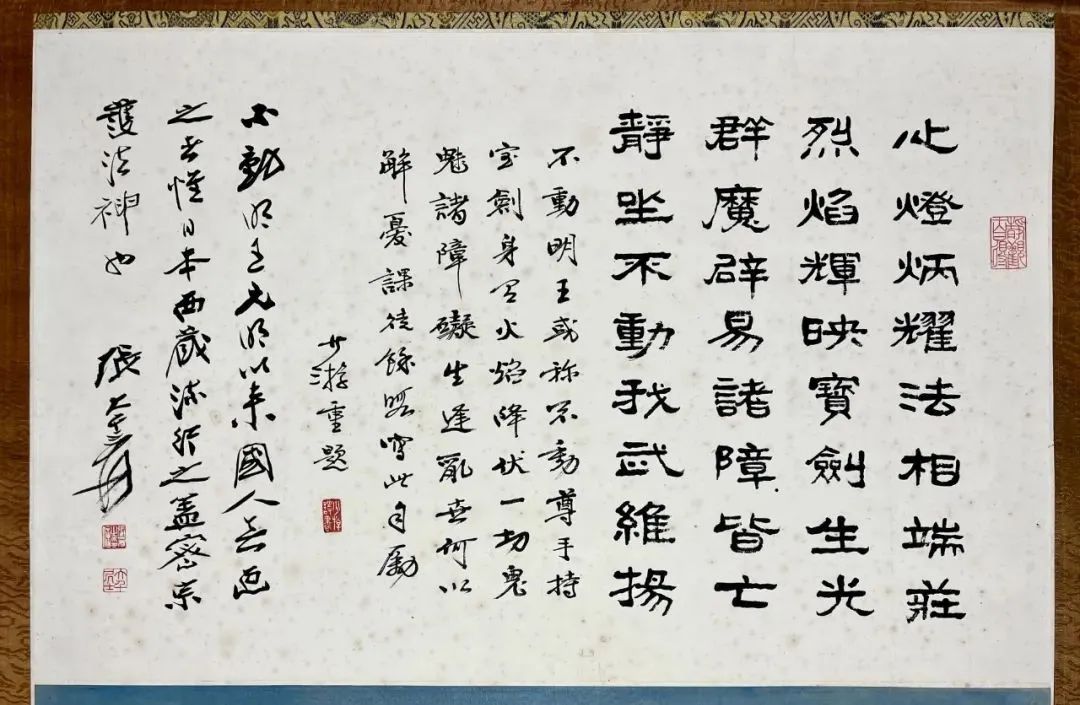 心燈炳耀法相端莊
烈焰輝映寶劍生光
群魔辟易諸障皆亡
靜坐不動我武維揚
不動明王或称不動尊手持
宝劍身火焰降伏一切鬼
魅諸障礙生逢亂世何以
解憂課徒餘暇寫此自勵
少游重題
不動明王元明以來國人無画
之者惟日本西藏流行之盖密宗
護法神也
張大千爰